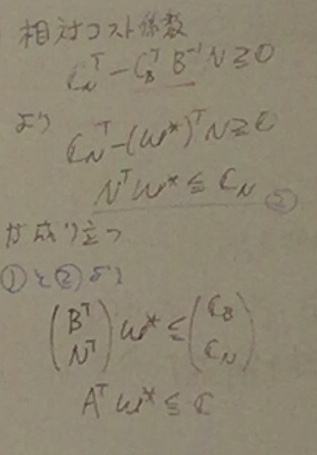 相対コスト係数
C_N^T - C_B^T B^{-1} N ≧ 0
より
C_N^T - (w*)^T N ≧ 0
N^T w* ≦ C_N ②
が成り立つ
①と②より
(B^T N^T) w* ≦ (C_B C_N)
A^T w* ≦ C